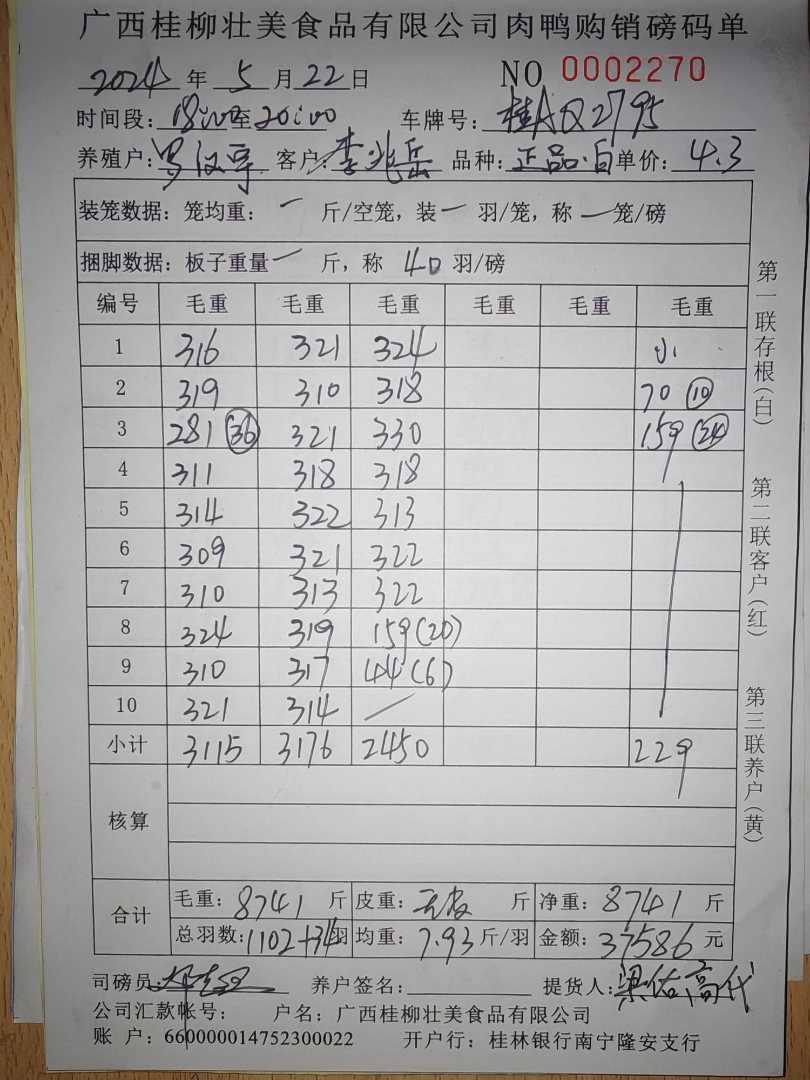 广西桂柳壮美食品有限公司肉鸭购销磅码单
2024年5月22日 NO 0002270
时间段:18:00至20:00 车牌号:桂AQ2795
养殖户: 客户:李兆岳 品种:正品.白 单价:4.3
装笼数据:笼均重:一斤/空笼,装一羽/笼,称一笼/磅
捆脚数据:板子重量一斤,称40羽/磅
编号 毛重 毛重 毛重 毛重 毛重 毛重
1 316 321 324 小
2 319 310 318 70 (10)
3 281 (36) 321 330 159 (24)
4 311 318 318
5 314 322 313
6 309 321 322
7 310 313 322
8 324 319 159(20)
9 310 317 44(6)
10 321 314 /
小计 3115 3176 2450 229
核算
合计 毛重:8741斤 皮重:无皮斤 净重:8741斤
总羽数:1102+34羽 均重:7.93斤/羽 金额:37586元
司磅员: 养户签名: 提货人:梁佑高代
公司汇款帐号: 户名:广西桂柳壮美食品有限公司
账 户:660000014752300022 开户行:桂林银行南宁隆安支行
第一联存根(白)
第二联客户(红)
第三联养户(黄)